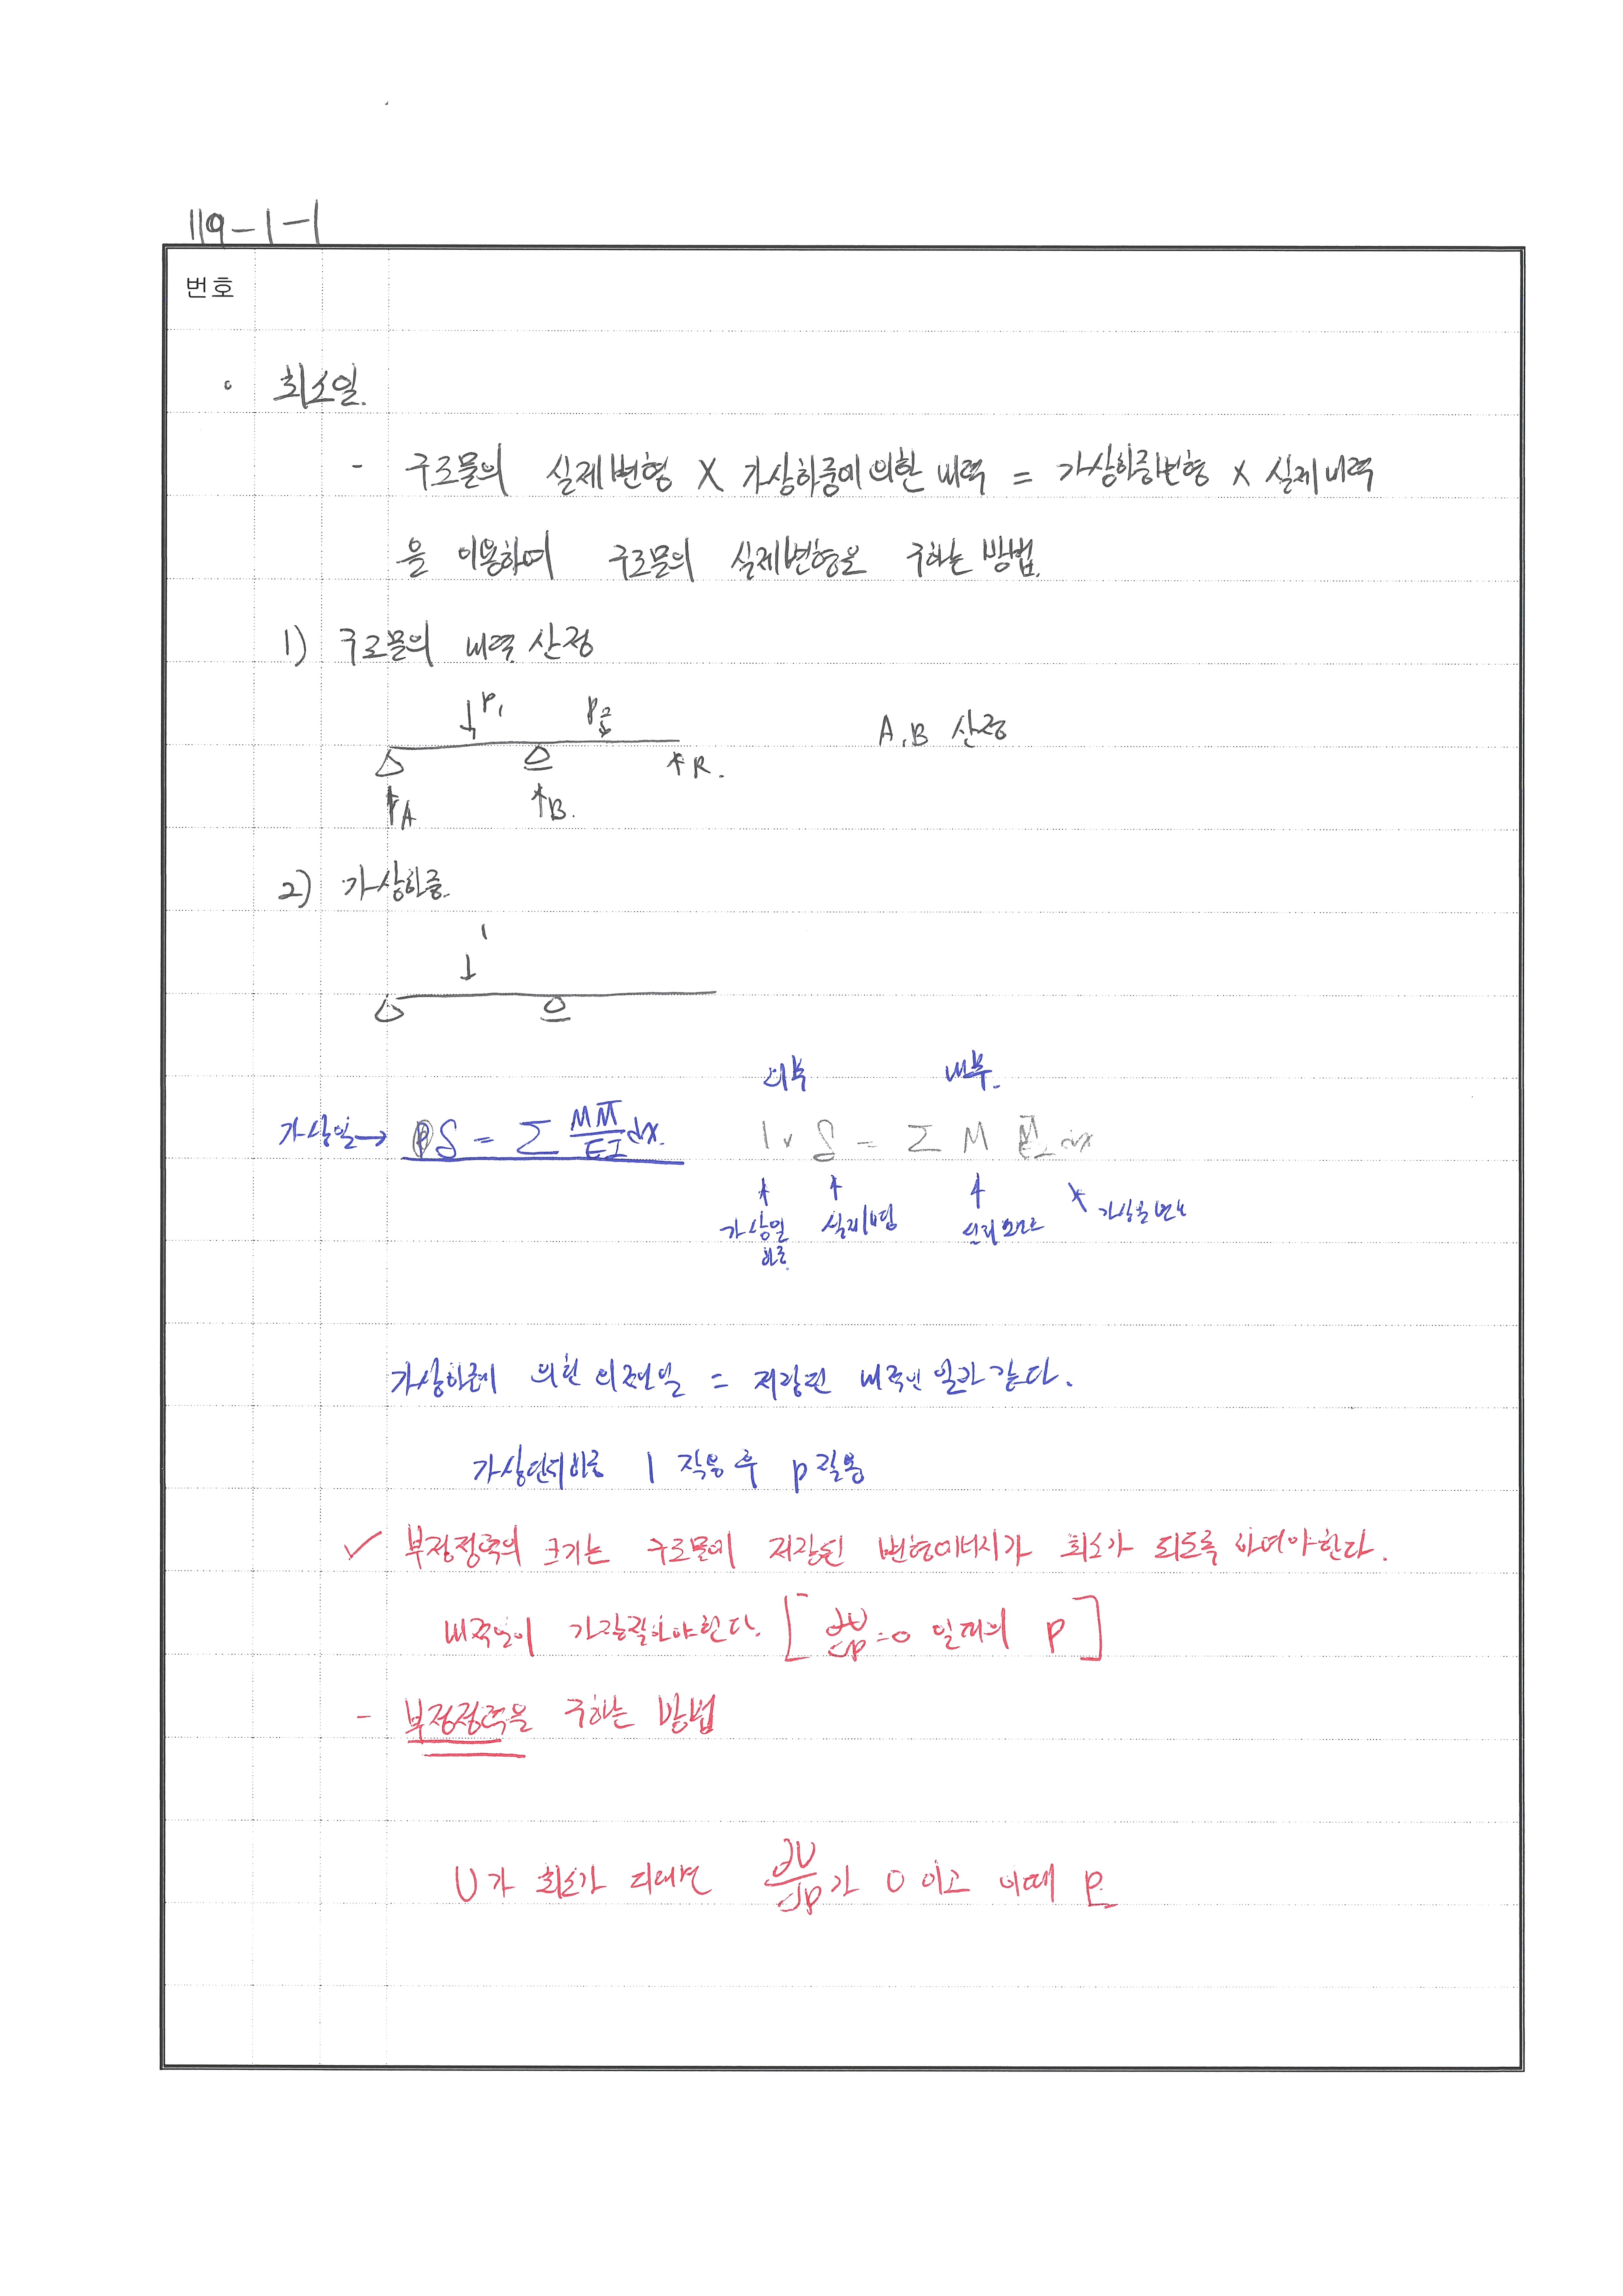 119-1-1
번호
◦ 최소일.
- 구조물의 실제변형 X 가상하중에 의한 내력 = 가상하중변형 x 실제내력
을 이용하여 구조물의 실제변형을 구하는 방법.
1) 구조물의 내력 산정
↓P₁ P₂
A, B 산정
↑R.
↑A ↑B.
2) 가상하중.
1
외부 내부.
가상일→ δ = Σ MM̅/EI dx. 1 x δ = Σ M dx
가상일 실제변형
하중.
가상하중에 의한 외적일 = 저장된 내적인 일과 같다.
가상단위하중 1 작용 후 P 작용
✓ 부정정력의 크기는 구조물에 저장된 변형에너지가 최소가 되도록 하여야한다.
내적일이 가장작아야한다. [ ∂U/∂P = 0 일때의 P ]
- 부정정력을 구하는 방법
U가 최소가 되려면 ∂U/∂P가 0 이고 이때 P